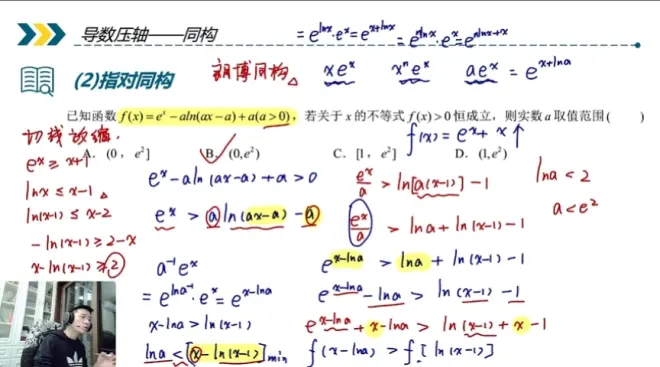 导数压轴——同构
= e^{lnx}·e^x = e^{x+lnx} = e^{nlnx}·e^x = e^{nlnx+x}
(2)指对同构
朗博同构△ xe^x x^n e^x ae^x = e^{x+lna}
已知函数 f(x)=e^x−aln(ax−a)+a(a>0), 若关于 x 的不等式 f(x)>0 恒成立，则实数 a 取值范围(  )
切线放缩.
f(x)=e^x+x↑
A. (0, e²] B. (0,e²) C. [1, e²] D. (1,e²)
e^x ≥ x+1
lnx ≤ x−1△
ln(x−1) ≤ x−2
−ln(x−1) ≥ 2−x
x−ln(x−1) ≥ 2
e^x−aln(ax−a)+a>0
e^x > aln(ax−a)−a
a^{-1}e^x
= e^{lna^{-1}}·e^x = e^{x−lna}
x−lna>ln(x−1)
lna<[x−ln(x−1)]min
e^x/a > ln[a(x−1)]−1
e^x/a > lna+ln(x−1)−1
e^{x−lna} > lna+ln(x−1)−1
e^{x−lna}−lna > ln(x−1)−1
e^{x−lna}+x−lna > ln(x−1)+x−1
f(x−lna)>f[ln(x−1)]
lna<2
a<e²